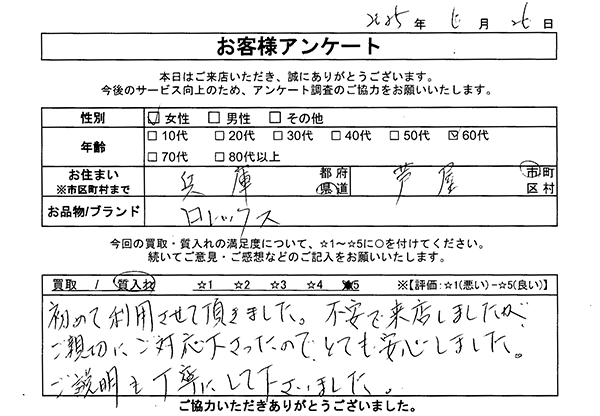 2025年 6月 26日
お客様アンケート
本日はご来店いただき、誠にありがとうございます。
今後のサービス向上のため、アンケート調査のご協力をお願いいたします。
性別 ☑女性 □男性 □その他
年齢 □10代 □20代 □30代 □40代 □50代 ☑60代
□70代 □80代以上
お住まい ※市区町村まで 兵庫 都府県道 芦屋 市町区村
お品物/ブランド ロレックス
今回の買取・質入れの満足度について、☆1～☆5に○を付けてください。
続いてご意見・ご感想などのご記入をお願いいたします。
買取 / 質入れ ☆1 ☆2 ☆3 ☆4 ☆5 ※【評価:☆1(悪い)-☆5(良い)】
初めて利用させて頂きました。不安で来店しましたが、
ご親切にご対応下さったので、とても安心しました。
ご説明も丁寧にして下さいました。
ご協力いただきありがとうございました。